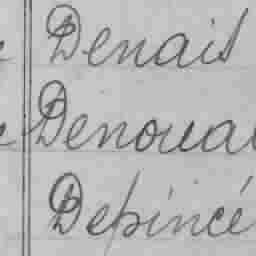 Denais
Denoual
Depincé